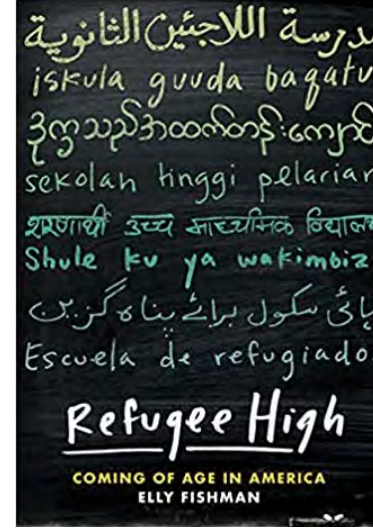 مدرسة اللاجئين الثانوية
iskula guuda baqatu
ဒုက္ခသည်အထက်တန်းကျောင်
sekolah tinggi pelarian
शरणार्थी उच्च माध्यमिक विद्यालय
Shule ku ya wakimbiz
ہائی سکول برائے پناہ گزین
Escuela de refugiado
Refugee High
COMING OF AGE IN AMERICA
ELLY FISHMAN